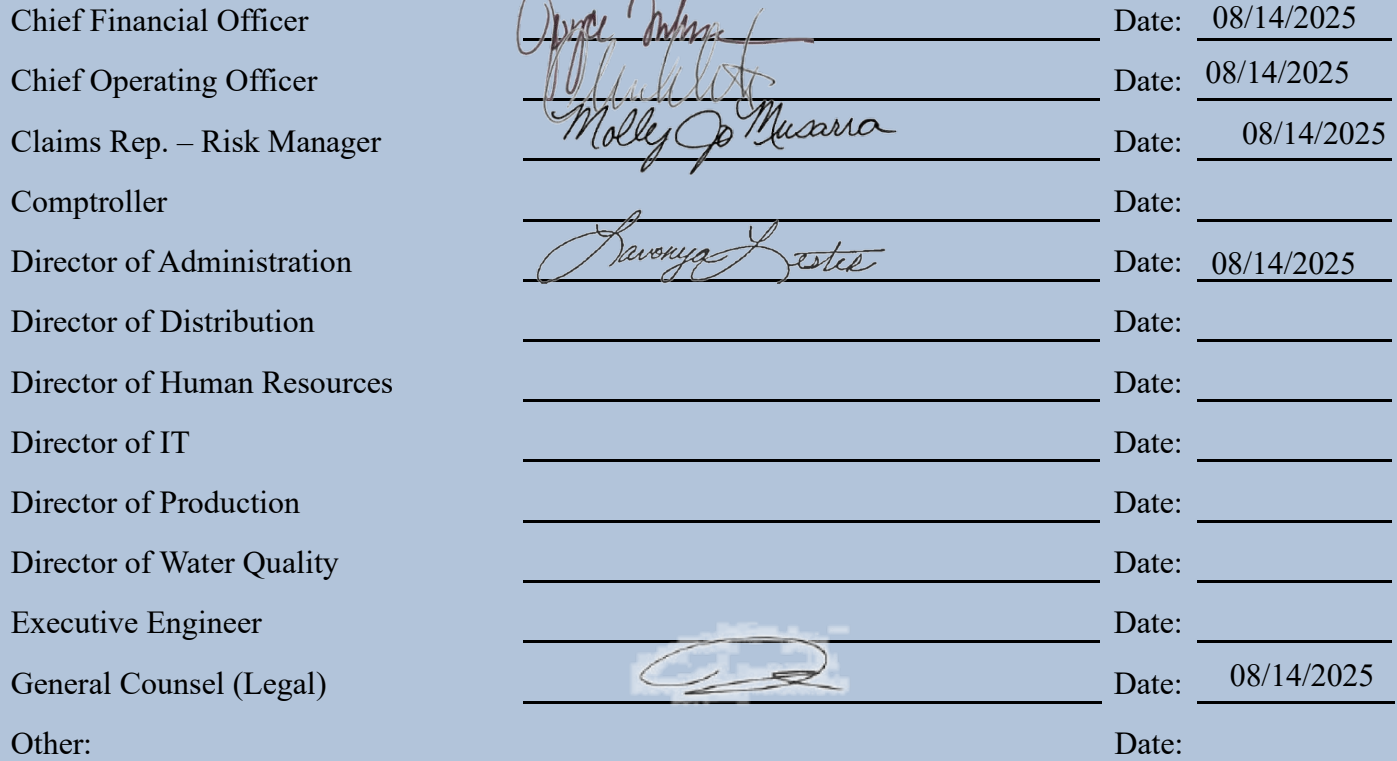 Chief Financial Officer Date: 08/14/2025
Chief Operating Officer Date: 08/14/2025
Claims Rep. – Risk Manager Molly Jo Musarra Date: 08/14/2025
Comptroller Date:
Director of Administration Lavonya Lester Date: 08/14/2025
Director of Distribution Date:
Director of Human Resources Date:
Director of IT Date:
Director of Production Date:
Director of Water Quality Date:
Executive Engineer Date:
General Counsel (Legal) Date: 08/14/2025
Other: Date: